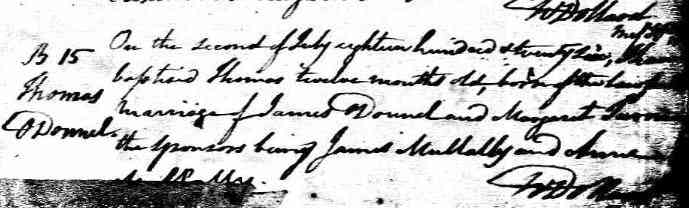 W Dollard
B 15
Thomas
O Donnel
On the second of July eighteen hundred & twenty six, I have
baptised Thomas twelve months old, born of the lawful
marriage of James O Donnel and Margaret
the sponsors being James Mullally and Anne
W Dollard